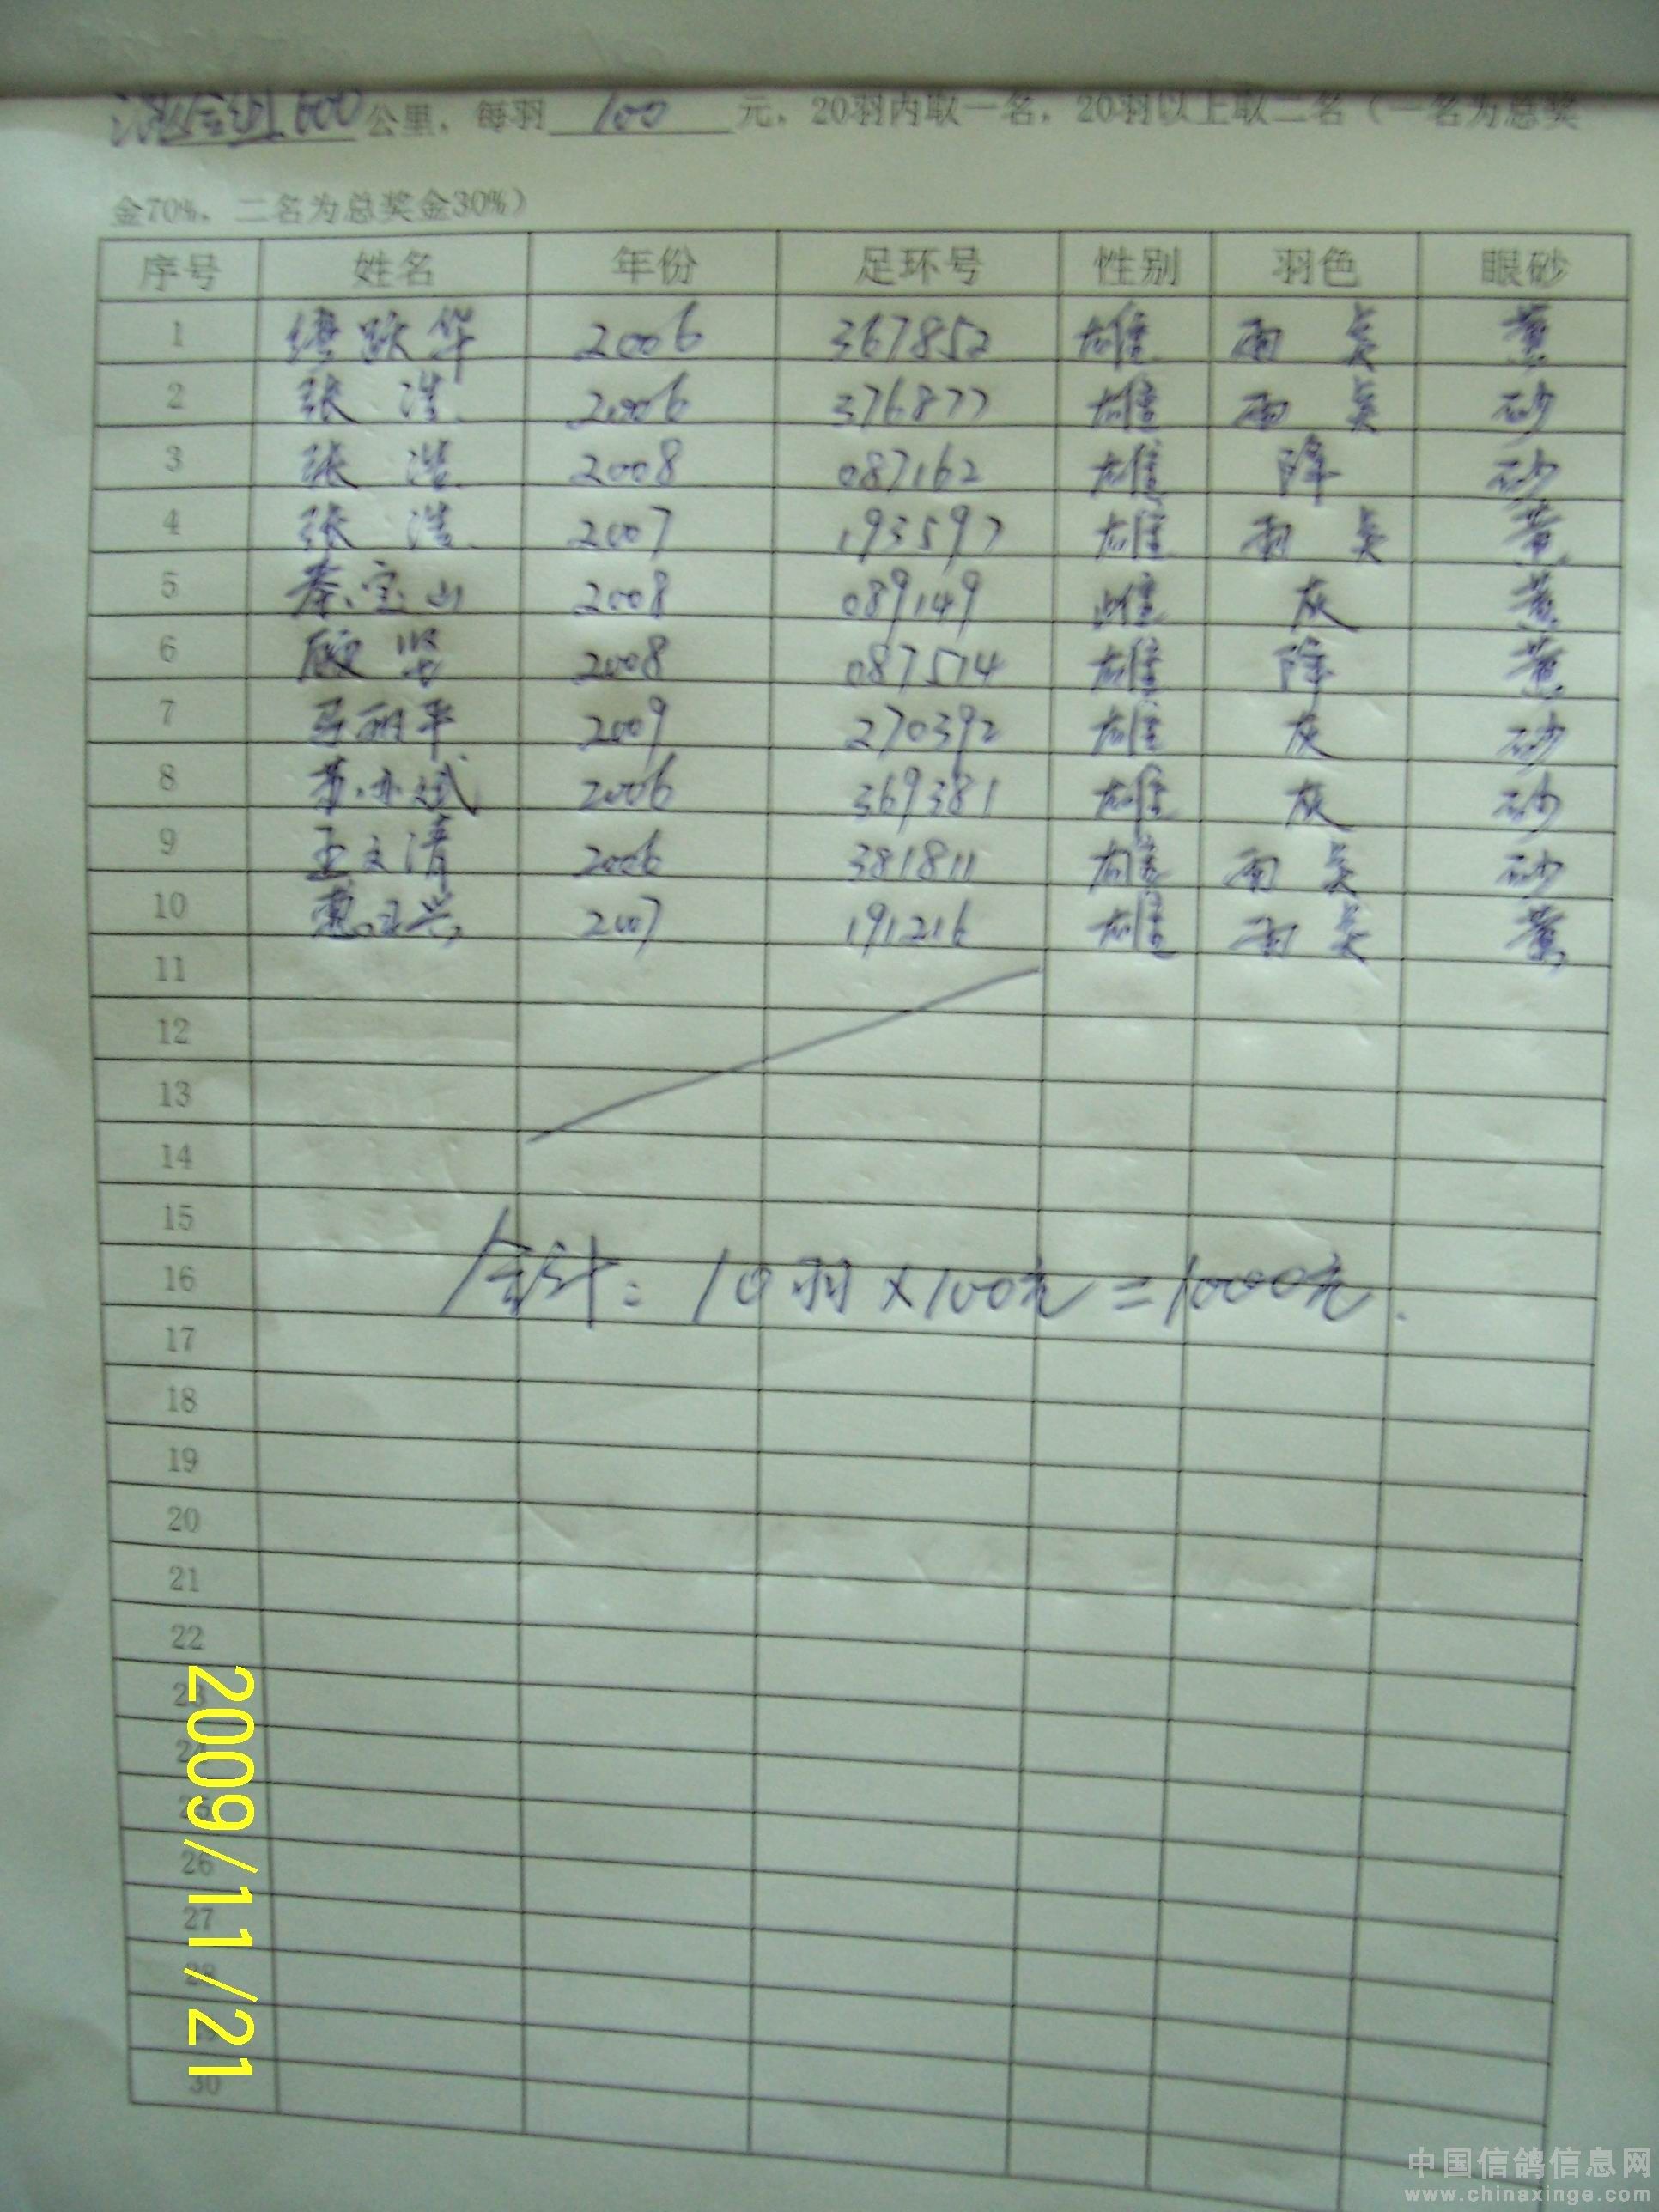 600公里，每羽 100 元，20羽内取一名，20羽以上取二名（一名为总奖
金70%、二名为总奖金30%）
序号 姓名 年份 足环号 性别 羽色 眼砂
1 缪跃华 2006 367852 雄 雨点 黄
2 张浩 2006 376877 雄 雨点 砂
3 张浩 2008 087162 雄 降 砂
4 张浩 2007 193597 雄 雨点 黄
5 秦宝山 2008 089149 雌 灰 黄
6 顾坚 2008 087514 雄 降 黄
7 马丽平 2009 270392 雄 灰 砂
8 2006 369381 雄 灰 砂
9 王文清 2006 381811 雄 雨点 砂
10 2007 191216 雄 雨点 黄
11
12
13
14
15
16
合计：10羽×100元=1000元.
17
18
19
20
21
22
23
24
25
26
27
28
30
2009/11/21
中国信鸽信息网
www.chinaxinge.com